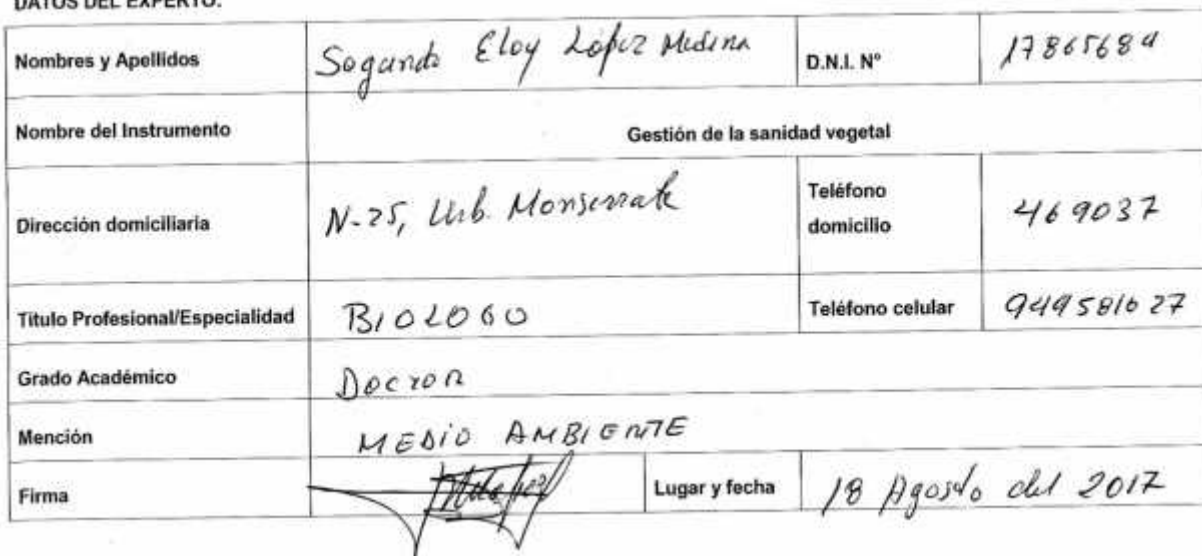 DATOS DEL EXPERTO:
Nombres y Apellidos Segundo Eloy López Medina D.N.I. Nº 17865684
Nombre del Instrumento Gestión de la sanidad vegetal
Dirección domiciliaria N-25, Urb. Monserrate Teléfono domicilio 469037
Título Profesional/Especialidad BIOLOGO Teléfono celular 949581627
Grado Académico Doctor
Mención MEDIO AMBIENTE
Firma Lugar y fecha 18 Agosto del 2017